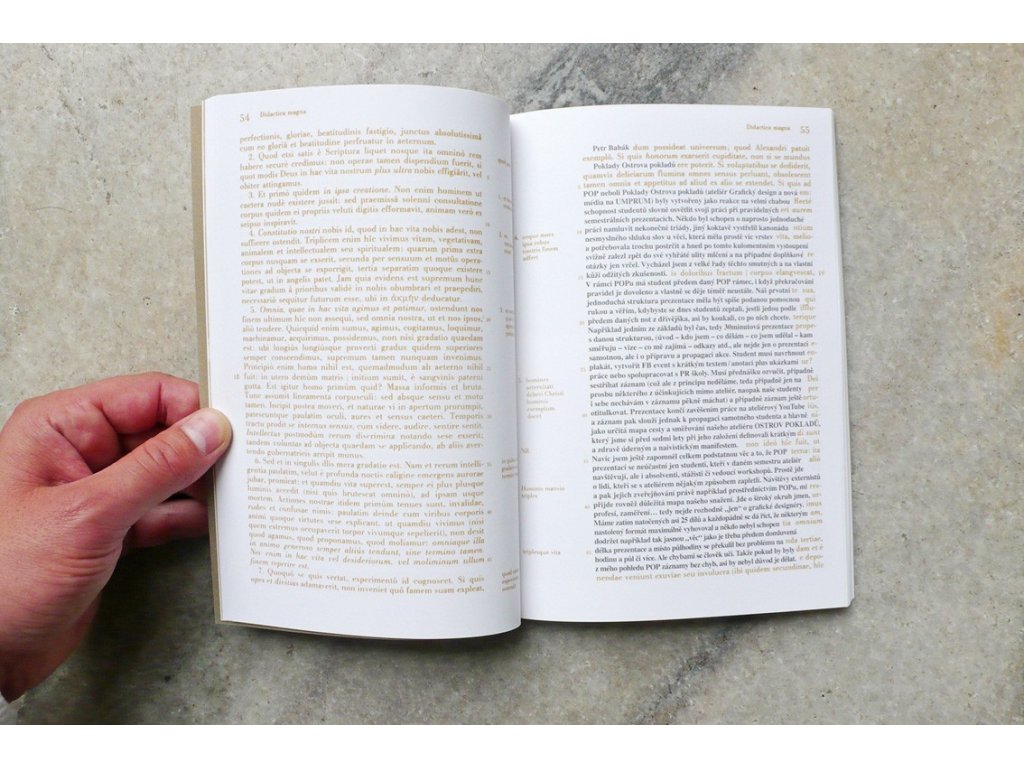 54 Didactica magna
perfectionis, gloriae, beatitudinis fastigio, junctus absolutissimâ
cum eo gloriâ et beatitudine perfruatur in aeternum.
2. Quod etsi satis è Scriptura liquet nosque ita omninò rem
habere securè credimus: non operae tamen dispendium fuerit, si
quot modis Deus in hac vita nostrum plus ultra nobis effigiârit, vel
obiter attingamus.
3. Et primò quidem in ipsa creatione. Non enim hominem ut
caetera nudè existere jussit: sed praemissâ solenni consultatione
corpus quidem ei propriis veluti digitis efformavit, animam verò ex
seipso inspiravit.
4. Constitutio nostri nobis id, quod in hac vita nobis adest, non
sufficere ostendit. Triplicem enim hîc vivimus vitam, vegetativam,
animalem et intellectualem seu spiritualem: quarum prima extra
corpus nusquam se exserit, secunda per sensuum et motûs opera-
tiones ad objecta se exporrigit, tertia separatim quoque existere
potest, ut in angelis patet. Jam quia evidens est supremum hunc
vitae gradum à prioribus validè in nobis obumbrari et praepediri,
necessariè sequitur futurum esse, ubi in ἀκμὴν deducatur.
5. Omnia, quae in hac vita agimus et patimur, ostendunt nos
finem ultimum hîc non assequi, sed omnia nostra, ut et nos ipsos,
aliò tendere. Quicquid enim sumus, agimus, cogitamus, loquimur,
machinamur, acquirimus, possidemus, non nisi gradatio quaedam
est: ubi longiùs longiùsque provecti gradus quidem superiores
semper conscendimus, supremum tamen nunquam invenimus.
Principiò enim homo nihil est, quemadmodum ab aeterno nihil
10 fuit: in utero demùm matris initium sumit, è sangvinis paterni
gutta. Est igitur homo primùm quid? Massa informis et bruta.
Tunc assumit lineamenta corpusculi: sed absque sensu et motu
tamen. Incipit postea moveri, et naturae vi in apertum prorumpit,
pateseuntque paulatim oculi, aures et sensus caeteri. Temporis
tractu prodit se internus sensus, cum videre, audire, sentire sentit.
Intellectus postmodum rerum discrimina notando sese exserit;
tandem voluntas ad objecta quaedam se applicando, ab aliis aver-
tendo gubernatricis arripit munus.
6. Sed et in singulis illis mera gradatio est. Nam et rerum intelli-
gentia paulatim, velut è profunda noctis caligine emergens aurorae
jubar, promicat: et quamdiu vivimus, semper ei plus plusque
luminis accedit (nisi quis brutescat omninò), ad ipsam usque
mortem. Actiones nostrae itidem primùm tenues sunt, invalidae,
rudes et confusae nimis: paulatim deinde cum viribus corporis
animi quoque virtutes sese explicant, ut quamdiu vivimus (nisi
quem extremus occupaverit torpor vivumque sepelierit), non desit
quod agamus, quod proponamus, quod moliamur: omniaque illa
in animo generoso semper altiùs tendunt, sine termino tamen.
Nec enim in hac vita vel desideriorum, vel moliminum ullum
finem reperire est.
7. Quoquò se quis vertat, experimentò id cognoscet. Si quis
opes et divitias adamaverit, non inveniet quô famem suam expleat,
Didactica magna 55
Petr Babák dum possideat universum; quod Alexandri patuit
exemplô. Si quis honorum exarserit cupiditate, non si se mundus
Poklady Ostrova pokladů ere poterit. Si voluptatibus se dediderit,
quamvis deliciarum flumina omnes sensus perluant, obsolescent
tamen omnia et appetitus ad aliud ex alio se extendet. Si quis ad
POP neboli Poklady Ostrova pokladů (ateliér Grafický design a nová em:
média na UMPRUM) byly vytvořeny jako reakce na velmi chabou fierté
schopnost studentů slovně osvětlit svoji práci při pravidelných ert aurem
semestrálních prezentacích. Někdo byl schopen o naprosto jednoduché
práci namluvit nekonečné triády, jiný koktavě vystřelil kanonádu otium
nesmyslného shluku slov a věcí, která měla prostě víc vrstev vita, melio-
a potřebovala trochu postrčit a hned po tomto kulomentním vystoupení
svižně zalezl zpět do své vyhřáté ulity mlčení a na případné doplňkové re
otázky jen vrčel. Vycházel jsem z velké řady těchto smutných a na vlastní
kůži odžitých zkušenosti. is doloribus fractum corpus elangvescat, ye
V rámci POPu má student předem daný POP rámec, i když překračování
pravidel je dovoleno a vlastně se děje téměř neustále. Náš prvotní te sus,
jednoduchá struktura prezentace měla být spíše podanou pomocnou qui
rukou a věřím, kdybyste se dnes studentů zeptali, jestli jedou podle illiu-
předem daných not z dřívějška, asi by koukali, co po nich chcete. terique
Například jedním ze základů byl čas, tedy 30minutová prezentace prope-
s danou strukturou, úvod – kdo jsem – co dělám – co jsem udělal – kam
směřuju – vize – co mě zajímá – odkazy atd., ale nejde jen o prezentaci
samotnou, ale i o přípravu a propagaci akce. Student musí navrhnout eo-
plakát, vytvořit FB event s krátkým textem/anotací plus ukázkami ur?
práce nebo spolupracovat s PR školy. Musí přednášku odučit, případně
sestříhat záznam (což ale z principu neděláme, teda případně jen na Dei
prosbu některého z účinkujících mimo ateliér, naopak naše studenty per
i sebe nechávám v záznamu pěkně máchat) a případně záznam ještě artam
otitulkovat. Prezentace končí zavěšením práce na ateliérový YouTube
a záznam pak slouží jednak k propagaci samotného studenta a hlavně na
jako určitá mapa cesty a směřování našeho ateliéru OSTROV POKLADŮ,
který jsme si před sedmi lety při jeho založení definovali krátkým di sunt
a zdravě úderným a naivistickým manifestem. non ideò hîc fuit, ut
Navíc jsem ještě zapomněl celkem podstatnou věc a to, že POP terna: ità
prezentací se neúčastní jen studenti, kteří v daném semestru ateliér adhi-
navštěvují, ale i absolventi, stážisti či vedoucí workshopů. Prostě jde
o lidi, kteří se s ateliérem nějakým způsobem zapletli. Návštěvy externistů
a pak jejich zveřejňování právě například prostřednictvím POPu, mi pře-
přijde rovněž důležitá mapa našeho snažení. Jde o široký okruh jmen, urs
profesí, zaměření… tedy nejde rozhodně „jen“ o grafické designéry, imus
Máme zatím natočených asi 25 dílů a každopádně se dá říct, že některým om,
mustolový formát maximálně vyhovoval a někdo nebyl schopen tia omnium
dodržet například tak jasnou „věc“ jako je třeba předem domluvená
délka prezentace a místo půlhodiny se překulil bez problému na nde tertiae,
hodinu a půl či více. Ale chybami se člověk učí. Takže pokud by byly dam et è
z mého pohledu POP záznamy bez chyb, asi by nebyl důvod je dělat.
dependendae veniunt exuviae seu involucra (ibi quidem secundinae, hîc